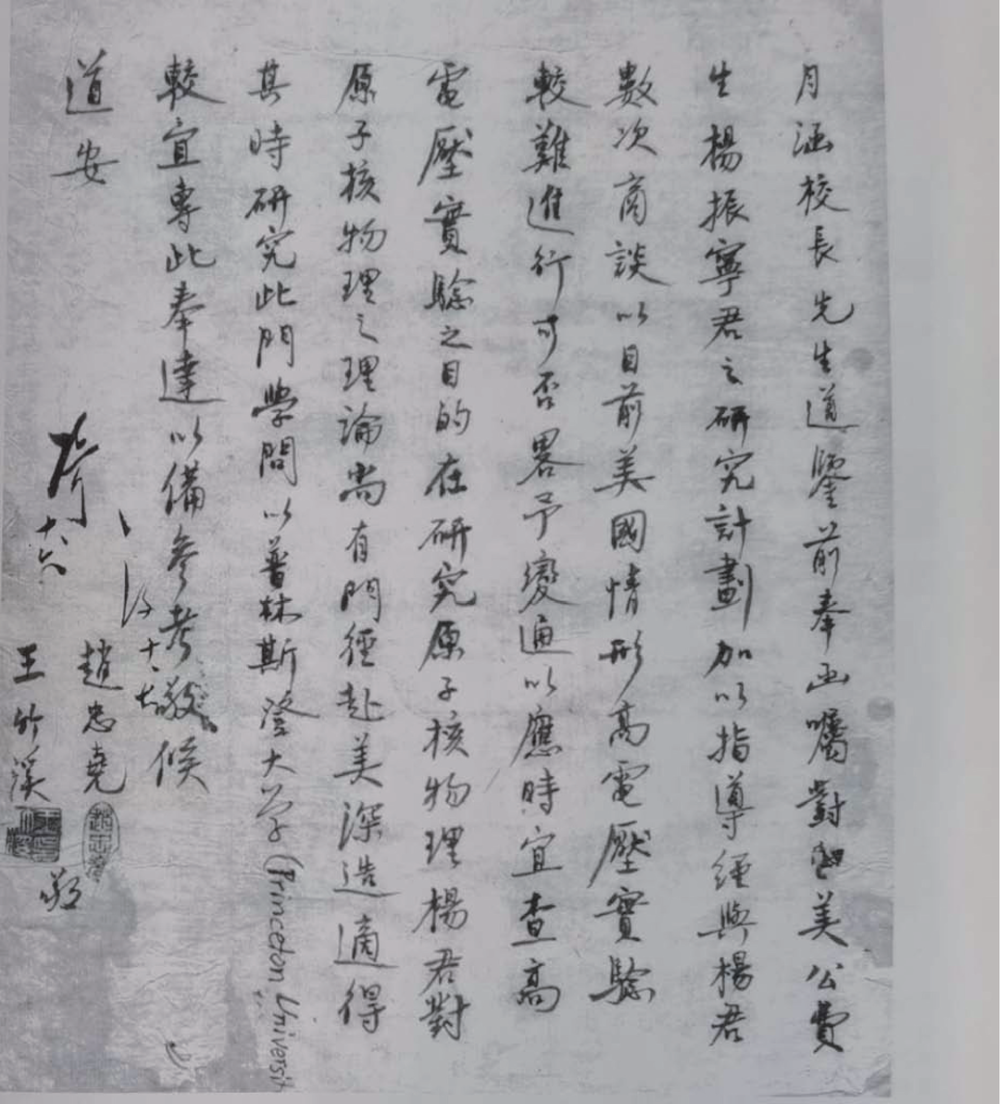 月涵校長先生道鑒前奉函囑對留美公費
生楊振寧君之研究計劃加以指導經與楊君
數次商談以目前美國情形高電壓實驗
較難進行可否畧予變通以應時宜查高
電壓實驗之目的在研究原子核物理楊君對
原子核物理之理論尚有門徑赴美深造適得
其時研究此門學問以普林斯登大学(Princeton Universit
較宜專此奉達以備參考敬候
道安
趙忠堯
王竹溪